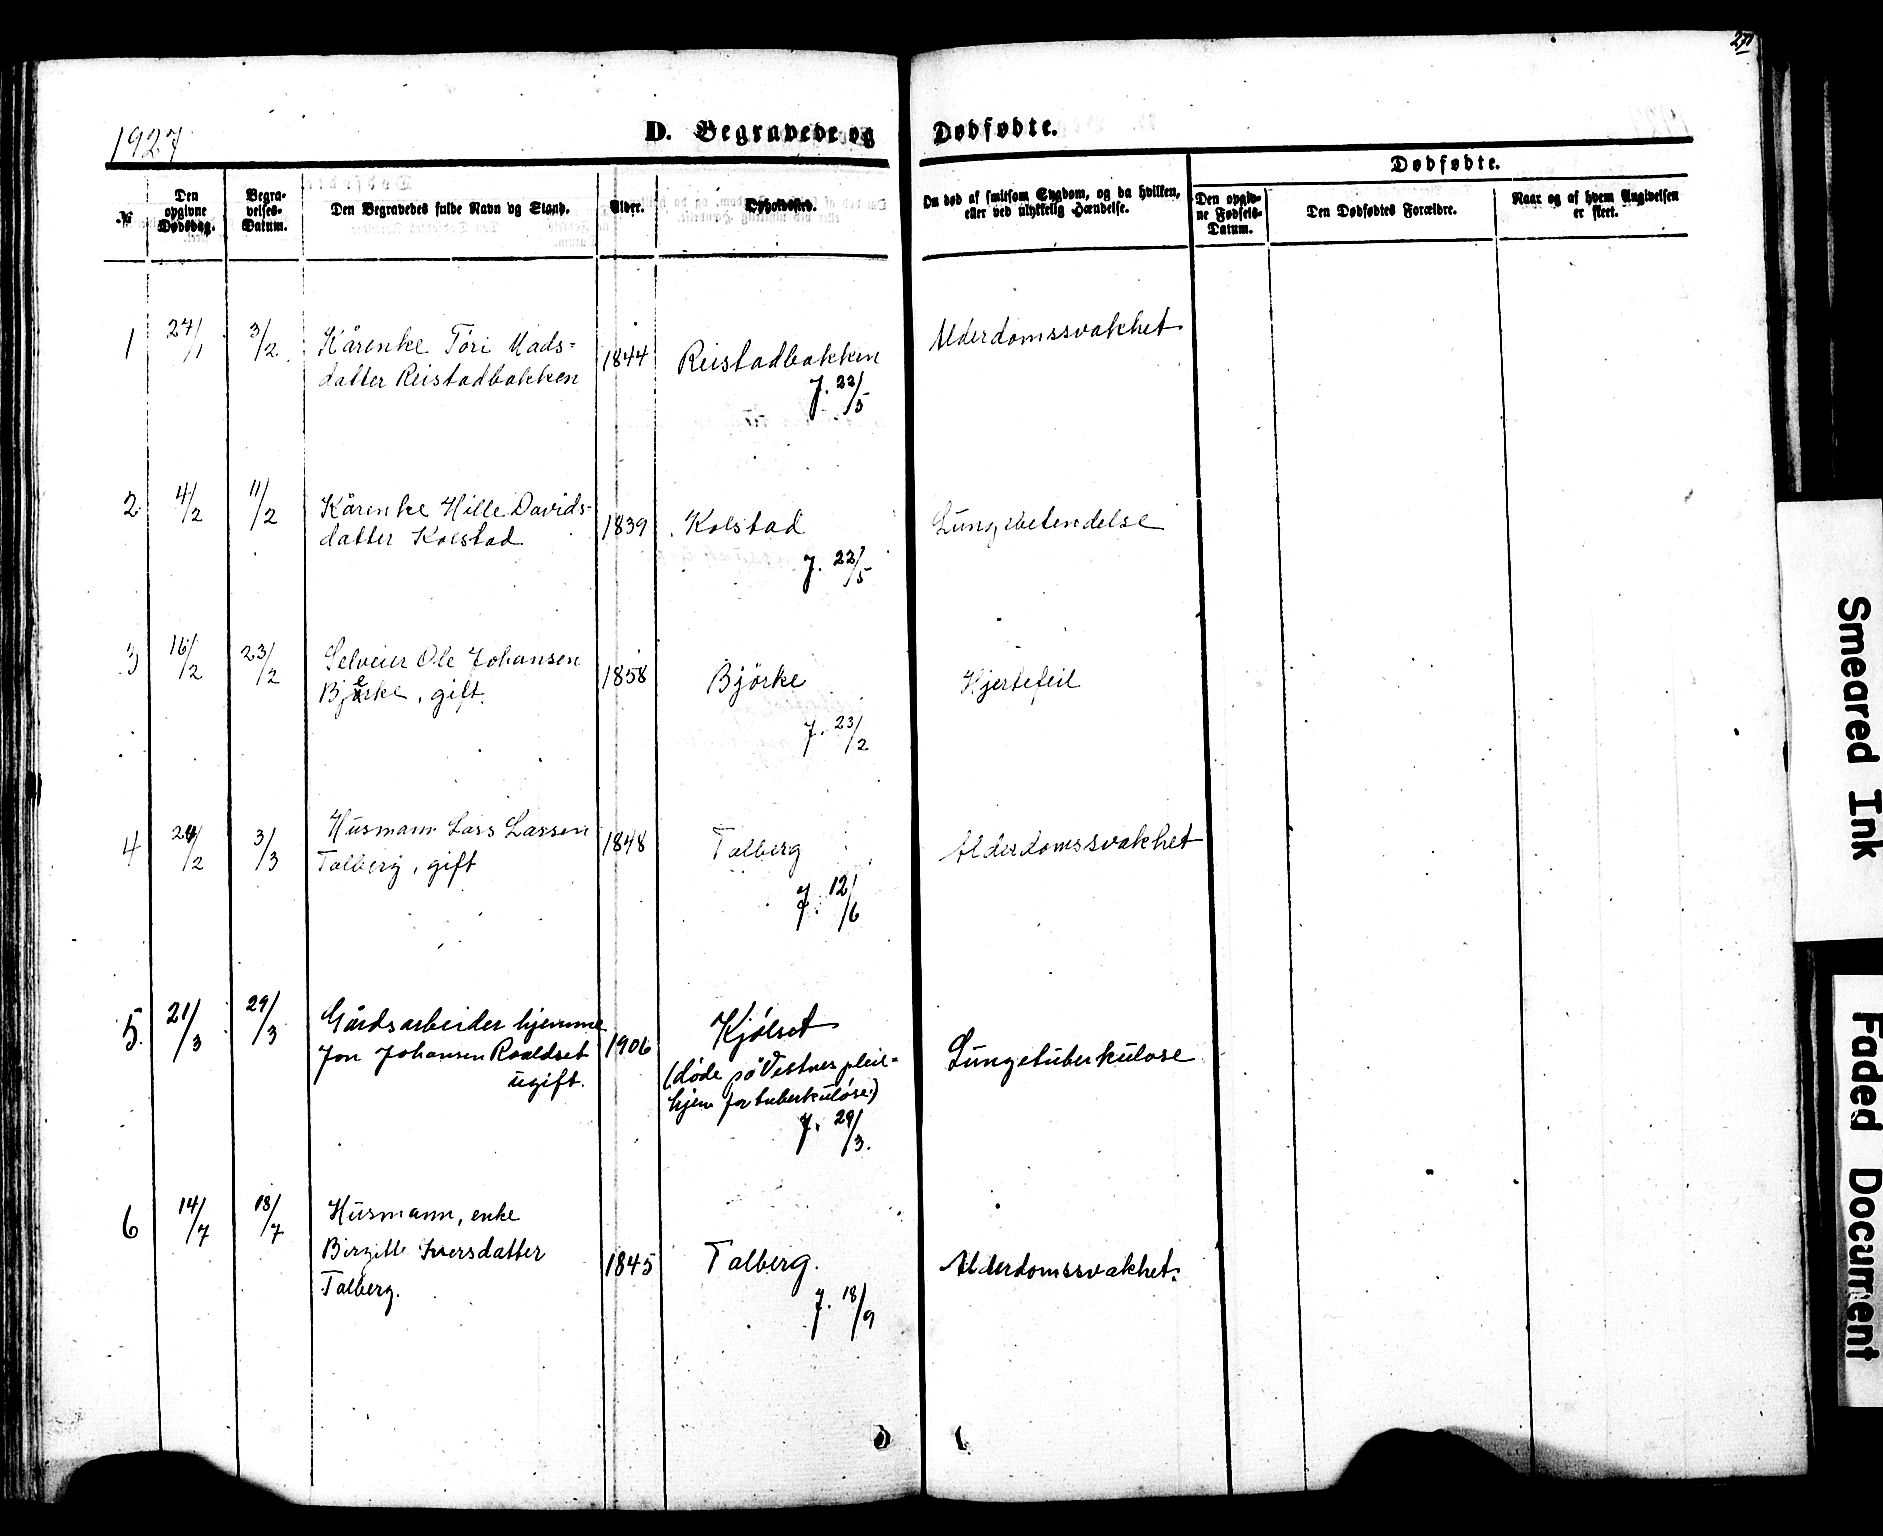 270
1927
D. Begravede og Dødfødte.
Dødfødte.
№
Den opgivne Dødsdag.
Begra-velses-Datum.
Den Begravedes fulde Navn og Stand.
Alder.
Opholdssted.
Om død af smitsom Sygdom, og da hvilken, eller ved ulykkelig Hændelse.
Den opgiv-ne Fødsels-Datum.
Den Dødfødtes Forældre.
Naar og af hvem Angivelsen er skeet.
1 27/1 3/2 Kårenke Töri Mads- 1844 Reistadbakken Alderdomssvakhet
datter Reistadbakken
J. 22/5
2 4/2 11/2 Kårenke Hille Davids- 1839 Kolstad Lungebetendelse
datter Kolstad
J. 22/5
3 16/2 23/2 Selveier Ole Johansen 1858 Björke Hjertefeil
Bjerke, gift.
J. 23/2
4 24/2 3/3 Husmann Lars Larsen 1848 Talberg Alderdomssvakhet
Talberg, gift
J. 12/6
5. 21/3 29/3 Gårdsarbeider hjemme 1906 Kjölset Lungetuberkulose
Jon Johansen Roaldset (döde på Vestnes pleie-
ugift. hjem for tuberkulöse.)
J. 29/3.
6 14/7 18/7 Husmann, enke
Birgitte Iversdatter 1845 Talberg. Alderdomssvakhet.
Talberg.
J. 18/9
Smeared Ink
Faded Document